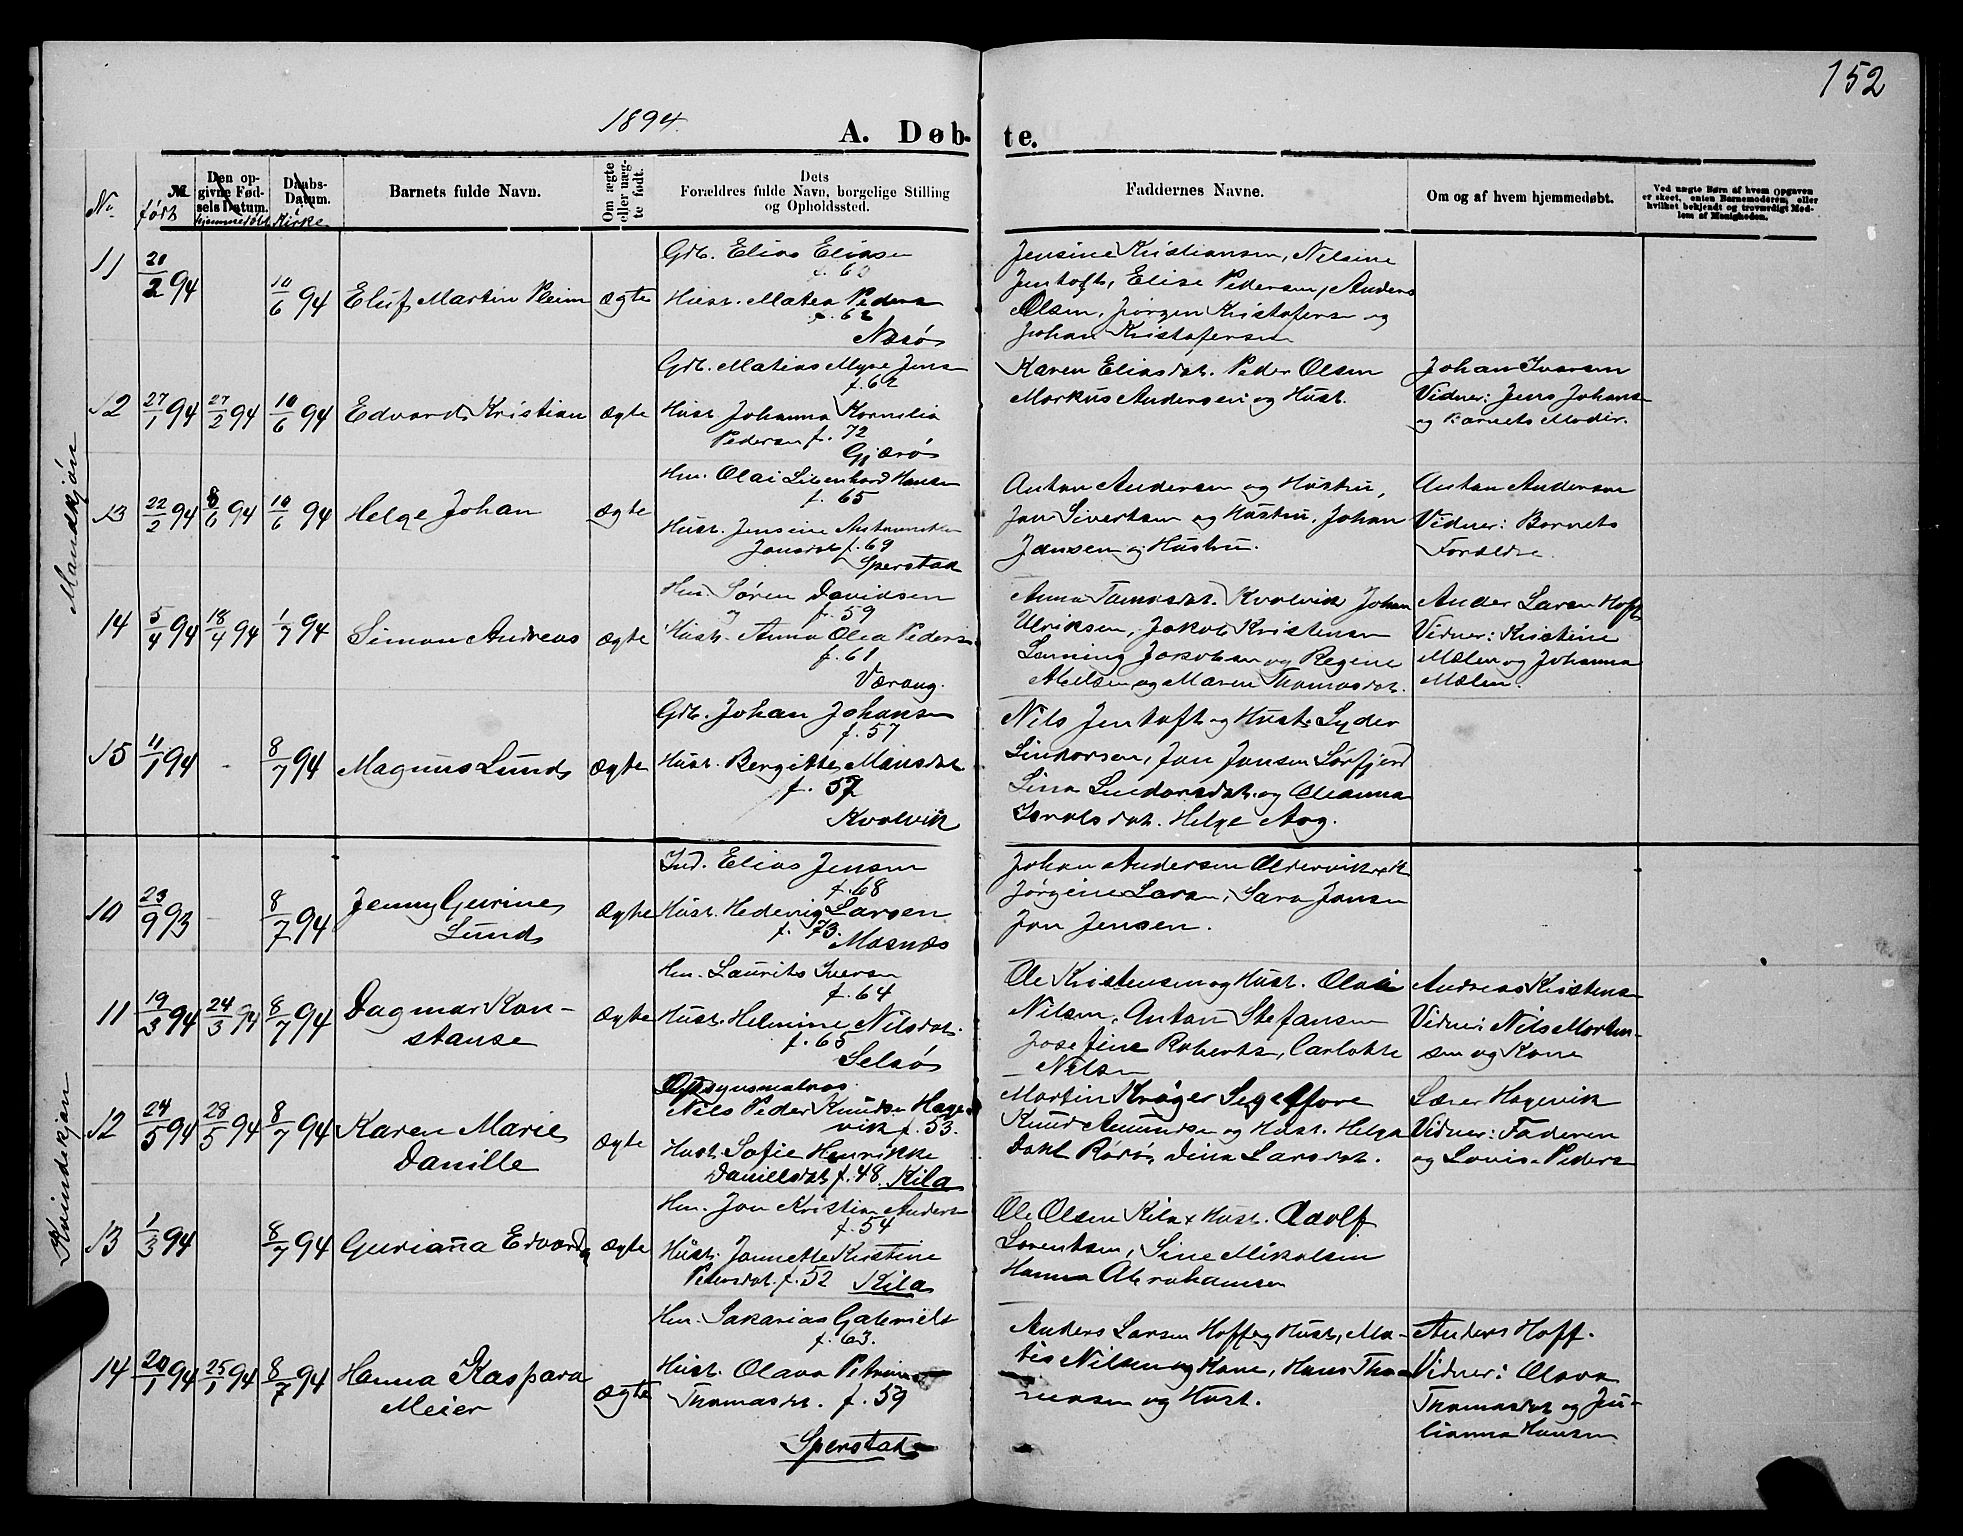 152
1894.
A. Døbte.
No.
M. født
Den opgivne Fødsels Datum. hjemmedøbt
Daabs-Datum. Kirke
Barnets fulde Navn.
Om ægte eller uægte født.
Dets Forældres fulde Navn, borgelige Stilling og Opholdssted.
Faddernes Navne.
Om og af hvem hjemmedøbt.
Ved uægte Børn af hvem Opgaven er skeet, enten Barnemoderen, eller hvilket bekjendt og troværdigt Medlem af Menigheden.
Mandkjøn
11 20/2 94 10/6 94 Eluf Martin Pleim ægte
Gdb. Elias Eliasen
Hust. Matea Peders
f. 62
Næsø
Jensine Kristiansen, Nilsine
Jentoft, Elise Pedersen, Anders
Olsen, Jørgen Kristofersen og
Johan Kristofersen
12 27/1 94 27/2 94 10/6 94 Edvard Kristian ægte
Gdb. Matias Myre Jens
f. 62
Hust. Johanna Kornelia
Pedersen f. 72
Gjærø
Karen Eliasdat. Peder Olsen
Markus Andersen og Hust.
Johan Ivarsen
Vidner: Jens Johans
og Barnets Moder.
13 22/2 94 8/6 94 10/6 94 Helge Johan ægte
Hm. Olai Libenhard Hansen
f. 65
Hust. Jensine
Jonsdat f. 69
Sperstad
Anton Andersen og Hustru,
Jon Sivertsen og Hustru, Johan
Jansen og Hustru.
Antan Andersen
Vidner: Barnets
Forældre.
14 5/4 94 18/4 94 1/7 94 Simon Andreas ægte
Hm. Søren Davidsen
og f. 59
Hust. Anna Olea Peders
f. 61
Værang.
Anna Tomasdat. Kvalvik Johan
Ulriksen, Jakob Kristensen
Jakobsen og Regine
Abelsen og Maren Thomasdat.
Ander Larsen Hoff
Vidner: Kristine
Mælen og Johanna
Mælen.
15 11/1 94 - 8/7 94 Magnus Lund ægte
Gdb. Johan Johansen
f. 57
Hust. Bergitte Monsdat
f. 57
Kvalvik
Nils Jentoft og Hust. Lyder
Lindorsen, Jon Jonsen Sørfjord
Lina Lindorsdat. og Oleanna
Isralsdat. Helge Aag.
Kvindekjøn
10 23/9 93 - 8/7 94 Jenny Gurine
Lund ægte
Ind. Elias Jensen
f. 68
Hust. Hedevig Larsen
f. 73.
Masnæs
Johan Andersen Oldervik
Jørgine Larsen, Sara Jonsen
Jon Jensen.
11 19/3 94 24/3 94 8/7 94 Dagmar Kon-
stanse ægte
Hm. Laurits Iversen
f. 64
Hust. Helmine Nilsdat.
f. 65
Selsø
Ole Kristensen og Hust. Olai
Nilsen, Anton Stefansen
Josefine Roberts, Carlotte
Nilsen
Andreas Kristens
Vidner: Nils Morten-
sen og Kone
12 24/5 94 28/5 94 8/7 94 Karen Marie
Danille ægte
Opsynsmatros
Nils Peder Knudsen Hage
vik f. 53.
Hust. Sofie Henrikke
Danielsdat f. 48. Kila
Martin Krøger Segelfore
Knud Amundsen og Hust. Helga
Dahl Rødø, Dina Larsdat.
Lærer Hagevik
Vidner: Faderen
og Lovise Peders
13 1/3 94 8/7 94 Gurianna Edvarda ægte
Hm. Jon Kristian Anders
f. 54
Hust. Jannette Kirstine
Petersdat. f. 52 Kila
Ole Olsen Kila x Hust. Adolf
Lorentsen, Sine Mikalsen
Hanna Abrahamsen
14 20/1 94 25/1 94 8/7 94 Hanna Kaspara
Meier ægte
Hm. Sakarias Gabriels
f. 63.
Hust. Olava Petrine
Thomasdat. f. 59
Sperstad
Anders Larsen Hoff og Hust, Ma-
tis Nilsen og Kone, Hans Tho
measen og Hust.
Anders Hoff.
Vidner: Olava
Thomasdat og Ju-
lianna Hansen